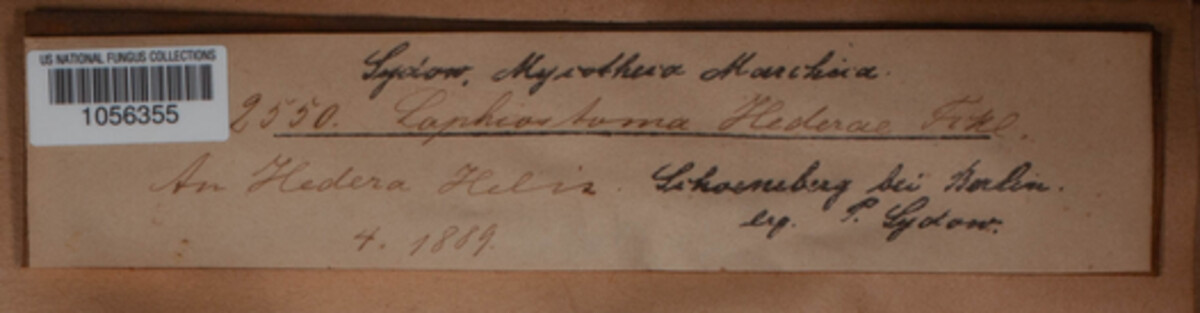 US NATIONAL FUNGUS COLLECTIONS
1056355
Sydow, Mycotheca Marchica.
2550. Lophiostoma Hederae Fckl.
An Hedera Helix. Schoeneberg bei Berlin.
4. 1889. leg. P. Sydow.